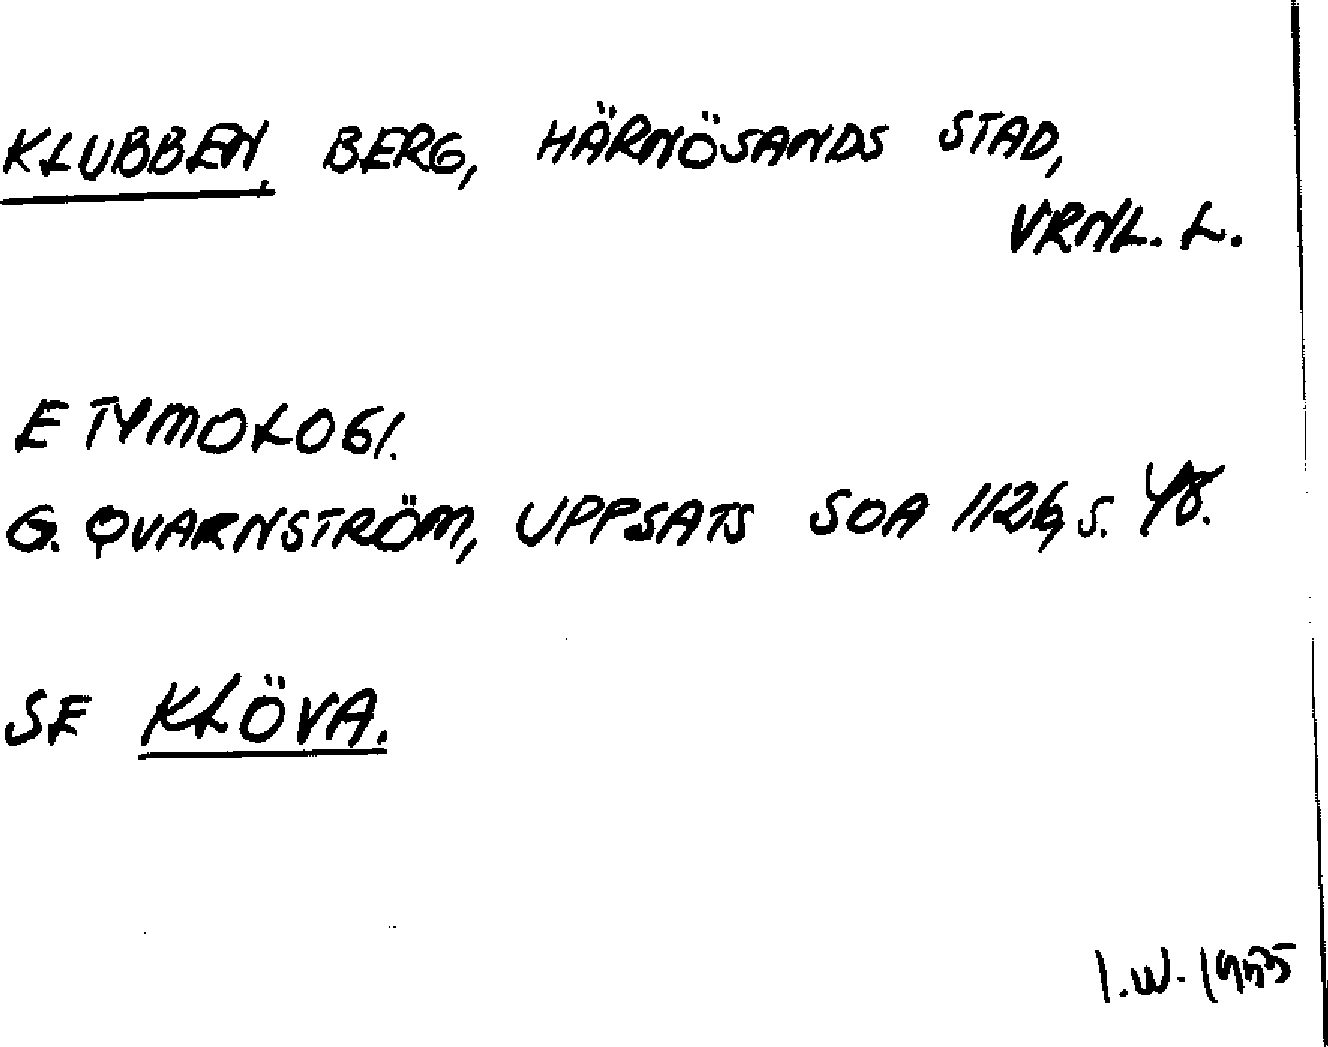 KLUBBEN, BERG, HÄRNÖSANDS STAD,
VRNL. L.
ETYMOLOGI.
G. QVARNSTRÖM, UPPSATS SOA 1126, s. 48.
SE KLÖVA.
I.W.